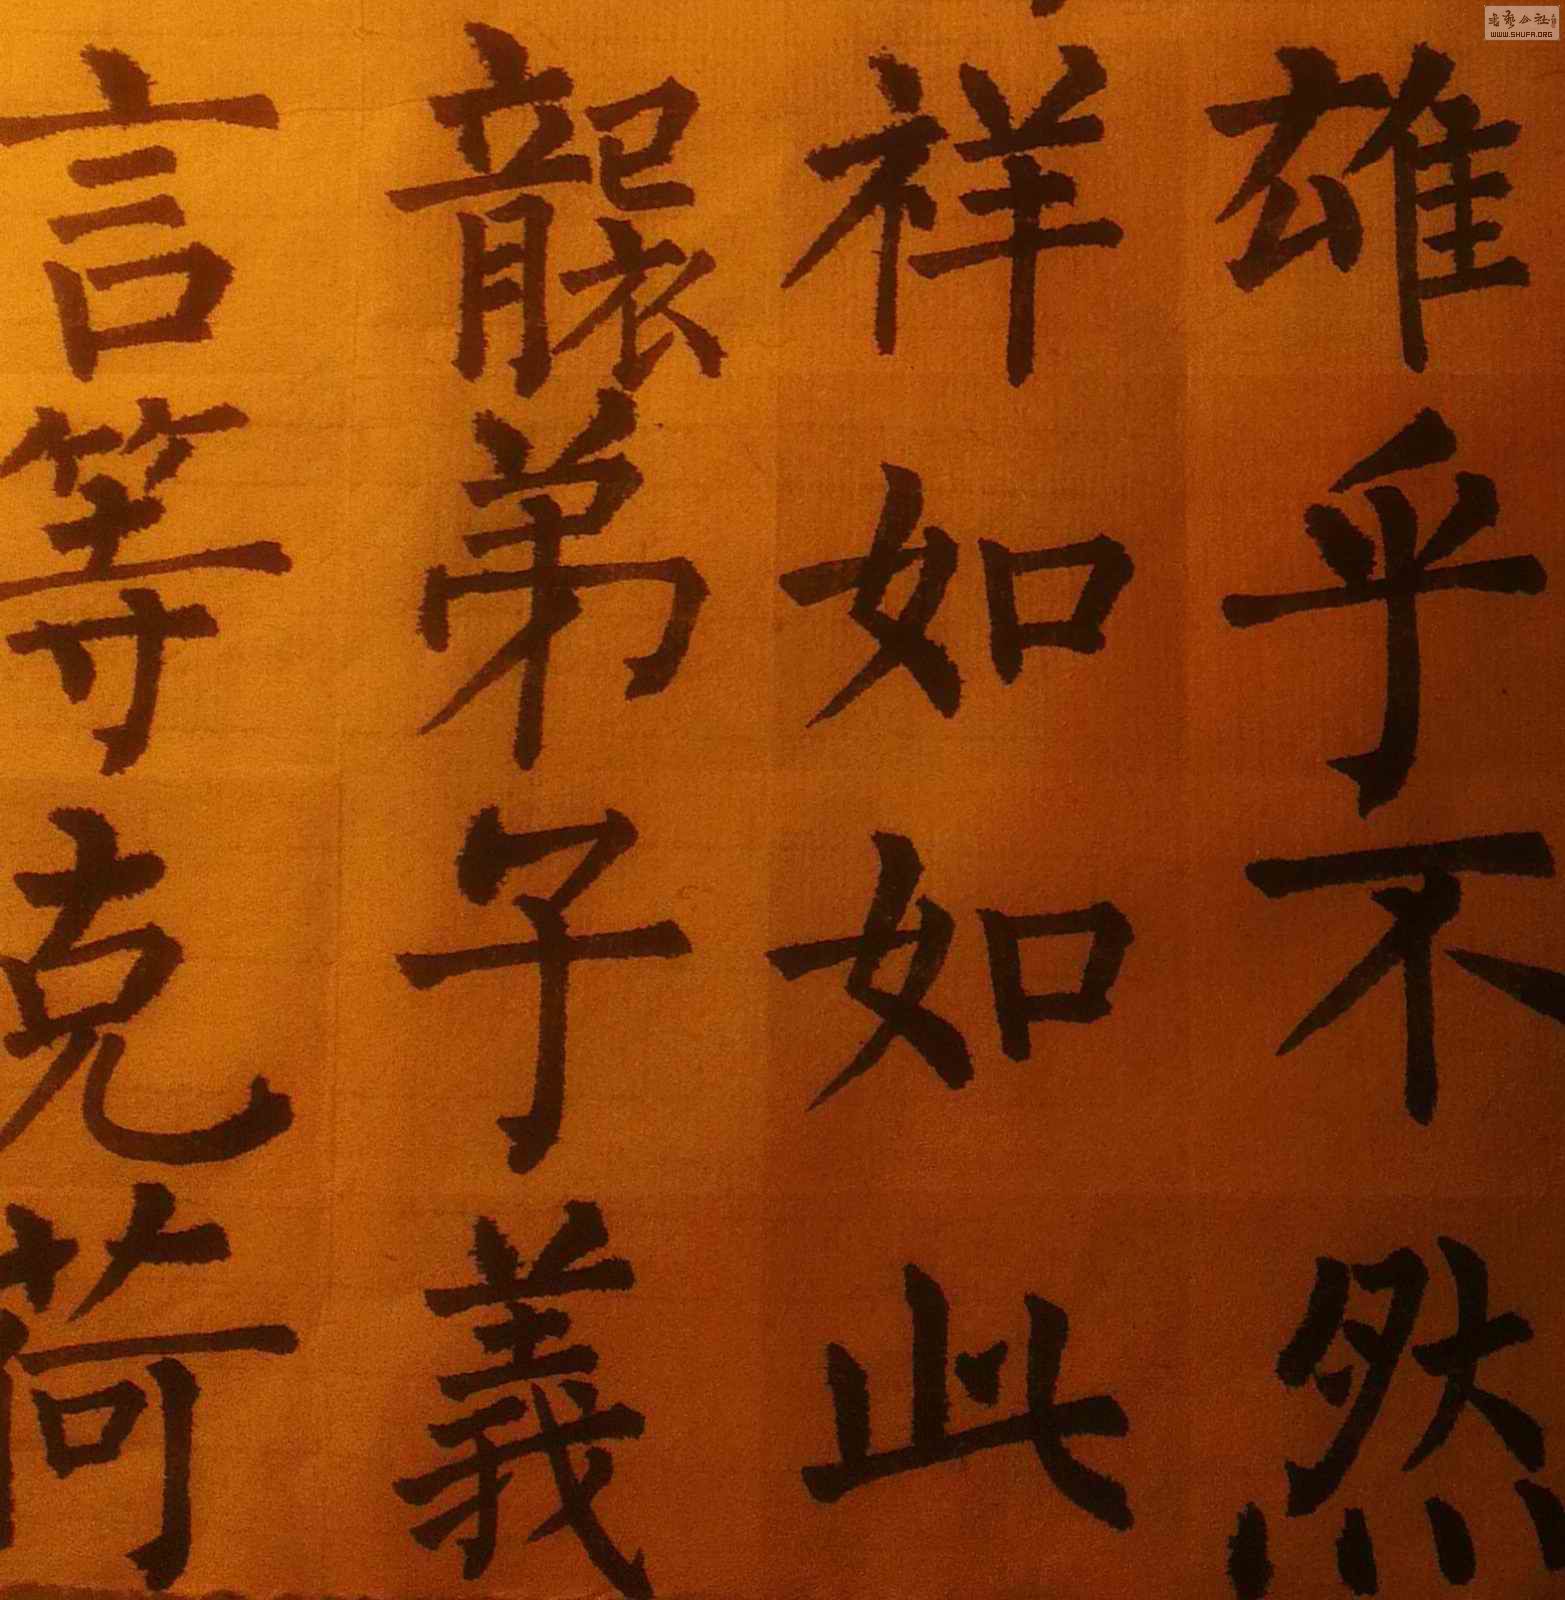 雄乎不然
祥如如此
襲弟子義
言等克荷
書藝公社
WWW.SHUFA.ORG